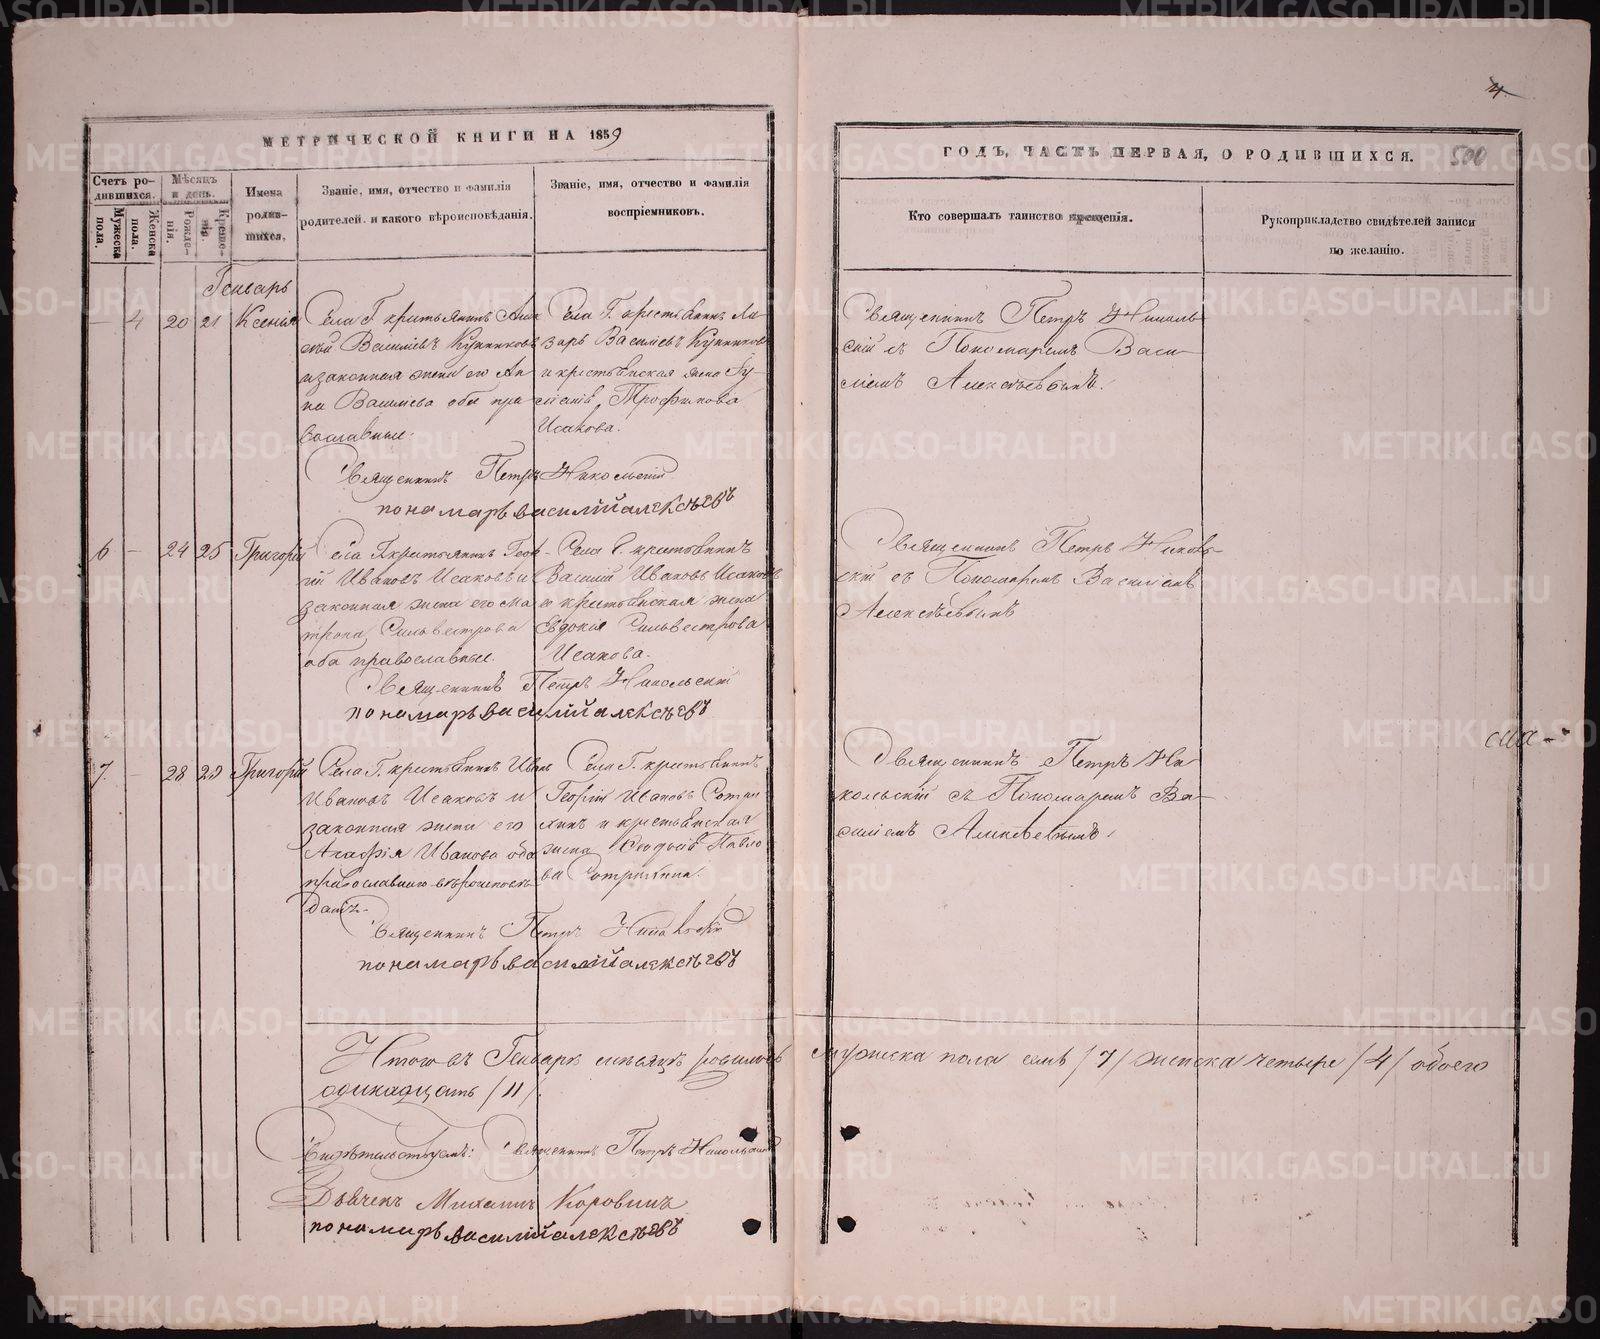 4
МЕТРИЧЕСКОЙ КНИГИ НА 1859
ГОДЪ, ЧАСТЬ ПЕРВАЯ, О РОДИВШИХСЯ.
500
Счетъ ро-
дившихся.
Мужеска пола.
Женска пола.
Мѣсяцъ
и день.
Рожде-
нія.
Креще-
нія.
Имена
родив-
шихся.
Званіе, имя, отчество и фамилія
родителей, и какого вѣроисповѣданія.
Званіе, имя, отчество и фамилія
воспріемниковъ.
Кто совершалъ таинство крещенія.
Рукоприкладство свидѣтелей записи
по желанію.
Генварь
— 4 20 21 Ксенія
Села Г. крестьянинъ
Василіевъ
и законная жена его Ан
на Васильева оба пра
вославные.
Села Г. крестьянинъ Ла
зарь Василіевъ
и крестьянская жена
Трофимова
Исакова.
Священникъ Петръ Николь
скій съ Пономаремъ Васи
ліемъ Алексѣевымъ.
Священникъ Петръ Никольскій
пономарь василій алексѣевъ
6 — 24 25 Григорій
Села Г. крестьянинъ Геор
гій Ивановъ Исаковъ и
законная жена его Ма
трона Сильвестрова
оба православные.
Села Г. крестьянинъ
Василій Ивановъ Исаковъ
и крестьянская жена
Евдокія Сильвестрова
Исакова.
Священникъ Петръ Николь
скій съ Пономаремъ Василіемъ
Алексѣевымъ
Священникъ Петръ Никольскій
пономарь василій алексѣевъ
7 — 28 29 Григорій
Села Г. крестьянинъ Иванъ
Ивановъ Исаковъ и
законная жена его
Агафія Иванова оба
православнаго вѣроисповѣ
данія.
Села Г. крестьянинъ
Георгій Ивановъ
и крестьянская
жена Павло
ва
Священникъ Петръ Ни
кольскій съ Пономаремъ Ва
силіемъ Алексѣевымъ.
Священникъ Петръ Никольскій
пономарь василій алексѣевъ
Итого въ Генварѣ мѣсяцѣ родилось мужеска пола семь /7/ женска четыре /4/ обоего
одинадцать /11/.
Свидѣтельствуемъ: Священникъ Петръ Никольскій
Дьячекъ Михаилъ Коровинъ
пономарь василій алексѣевъ
METRIKI.GASO-URAL.RU